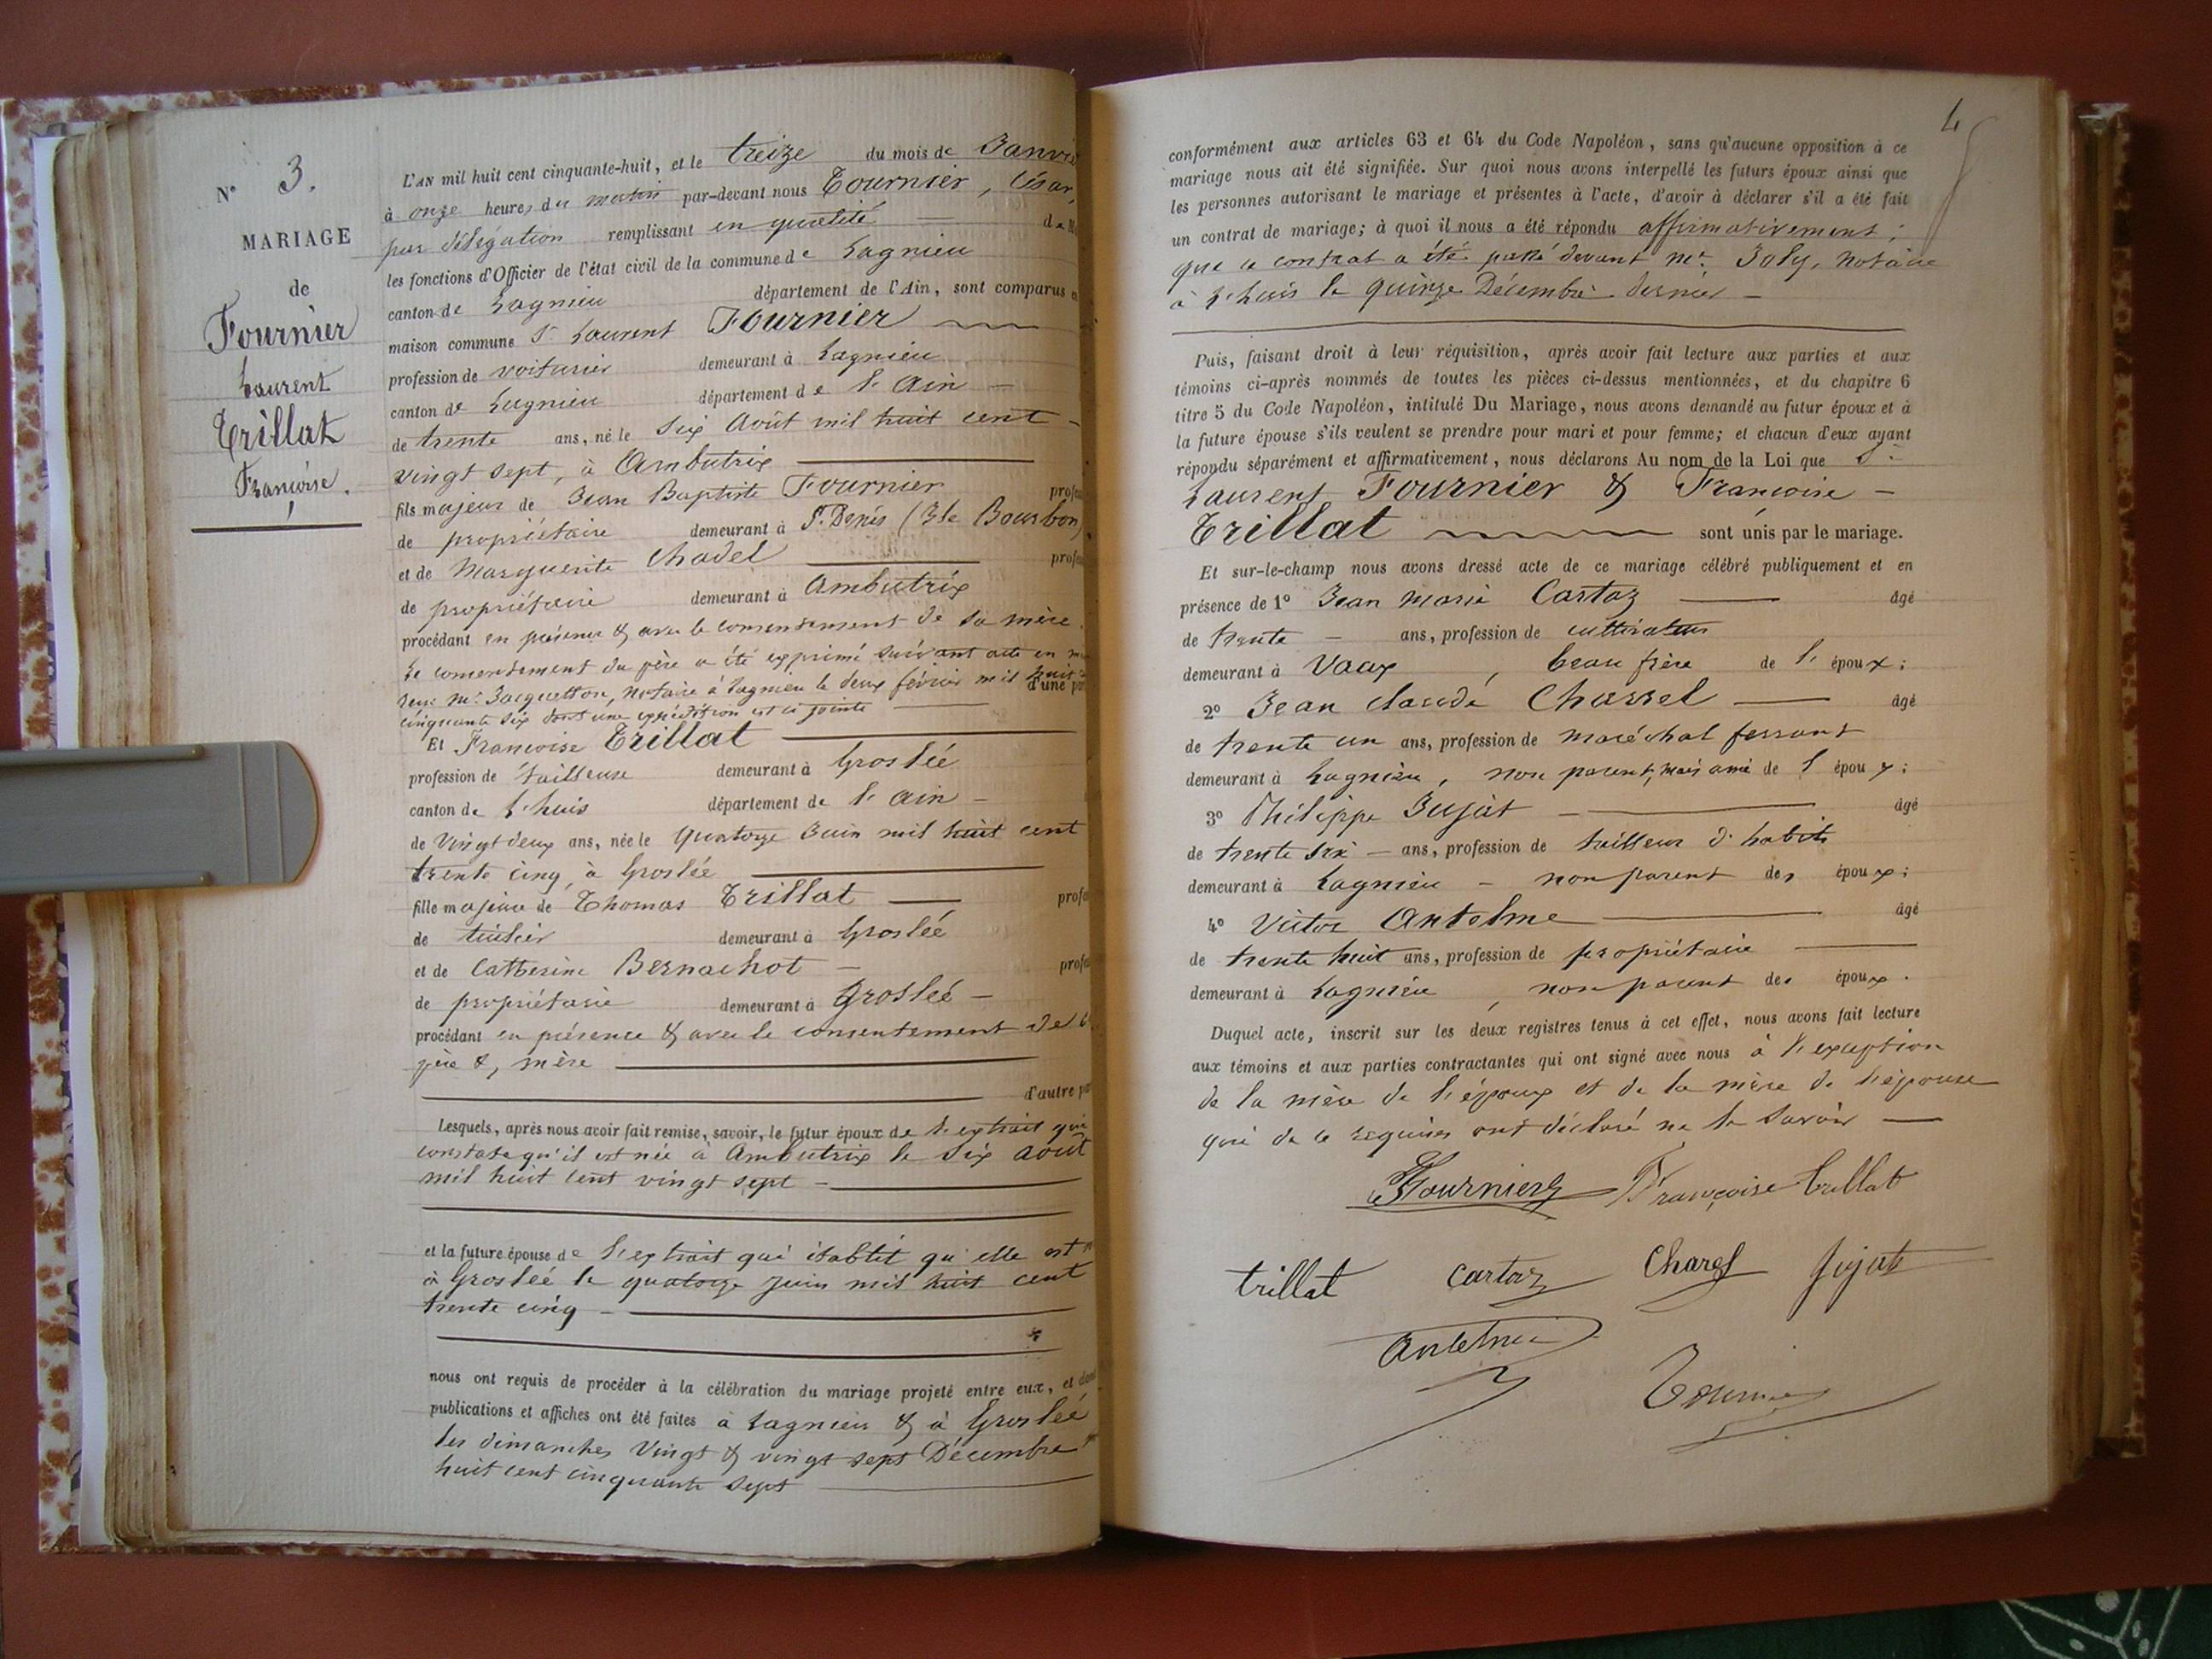 N° 3.
MARIAGE
de
Fournier
Laurent
Trillat
Françoise.
L'AN mil huit cent cinquante-huit, et le treize du mois de Janvie
à onze heures du matin par-devant nous Tournier, César,
par délégation remplissant en qualité
les fonctions d'Officier de l'état civil de la commune de Lagnieu
canton de Lagnieu département de l'Ain, sont comparus en
maison commune Sr Laurent Fournier
profession de voiturier demeurant à Lagnieu
canton de Lagnieu département de l'Ain
de trente ans, né le six Août mil huit cent
vingt sept, à Ambutrix
fils majeur de Jean Baptiste Fournier profes
de propriétaire demeurant à St Denis (Ile Bourbon)
et de Marguerite Chadel profes
de propriétaire demeurant à Ambutrix
procédant en présence & avec le consentement de sa mère.
Le consentement du père a été exprimé suivant acte en
Me Jacquetton, Notaire à Lagnieu le deux février mil huit d'une par
cinquante six dont une expédition est ci jointe
Et Françoise Trillat
profession de tailleuse demeurant à Groslée
canton de l'huis département de l'Ain
de vingt deux ans, née le quatorze Juin mil huit cent
trente cinq, à Groslée
fille majeure de Thomas Trillat profes
de demeurant à Groslée
et de Catherine Bernachot profes
de propriétaire demeurant à Groslée
procédant en présence & avec le consentement de
père & mère
d'autre par
Lesquels, après nous avoir fait remise, savoir, le futur époux de l'extrait qui
constate qu'il est née à Ambutrix le six août
mil huit cent vingt sept
et la future épouse de l'extrait qui établit qu'elle est
à Groslée le quatorze juin mil huit cent
trente cinq
nous ont requis de procéder à la célébration du mariage projeté entre eux, et dont
publications et affiches ont été faites à Lagnieu & à Groslée
les dimanches vingt & vingt sept Décembre
huit cent cinquante sept
4
conformément aux articles 63 et 64 du Code Napoléon, sans qu'aucune opposition à ce
mariage nous ait été signifiée. Sur quoi nous avons interpellé les futurs époux ainsi que
les personnes autorisant le mariage et présentes à l'acte, d'avoir à déclarer s'il a été fait
un contrat de mariage; à quoi il nous a été répondu affirmativement;
que ce contrat a été passé devant Me Joly, notaire
à l'huis le quinze Décembre dernier
Puis, faisant droit à leur réquisition, après avoir fait lecture aux parties et aux
témoins ci-après nommés de toutes les pièces ci-dessus mentionnées, et du chapitre 6
titre 5 du Code Napoléon, intitulé Du Mariage, nous avons demandé au futur époux et à
la future épouse s'ils veulent se prendre pour mari et pour femme; et chacun d'eux ayant
répondu séparément et affirmativement, nous déclarons Au nom de la Loi que Sr
Laurent Fournier & Françoise
Trillat sont unis par le mariage.
Et sur-le-champ nous avons dressé acte de ce mariage célébré publiquement et en
présence de 1° Jean Marie Cartaz âgé
de trente ans, profession de cultivateur
demeurant à Vaux, beau frère de l'époux;
2° Jean Claude Chassel âgé
de trente un ans, profession de maréchal ferrant
demeurant à Lagnieu, non parent, mais ami de l'époux;
3° Philippe Jujat âgé
de trente six ans, profession de tailleur d'habits
demeurant à Lagnieu non parent des époux;
4° Victor Antelme âgé
de trente huit ans, profession de propriétaire
demeurant à Lagnieu, non parent des époux.
Duquel acte, inscrit sur les deux registres tenus à cet effet, nous avons fait lecture
aux témoins et aux parties contractantes qui ont signé avec nous à l'exception
de la mère de l'époux et de la mère de l'épouse
qui de ce requises ont déclaré ne le savoir
Fournier Françoise trillat
trillat Cartaz Charel Jujat
Antelme
Tournier